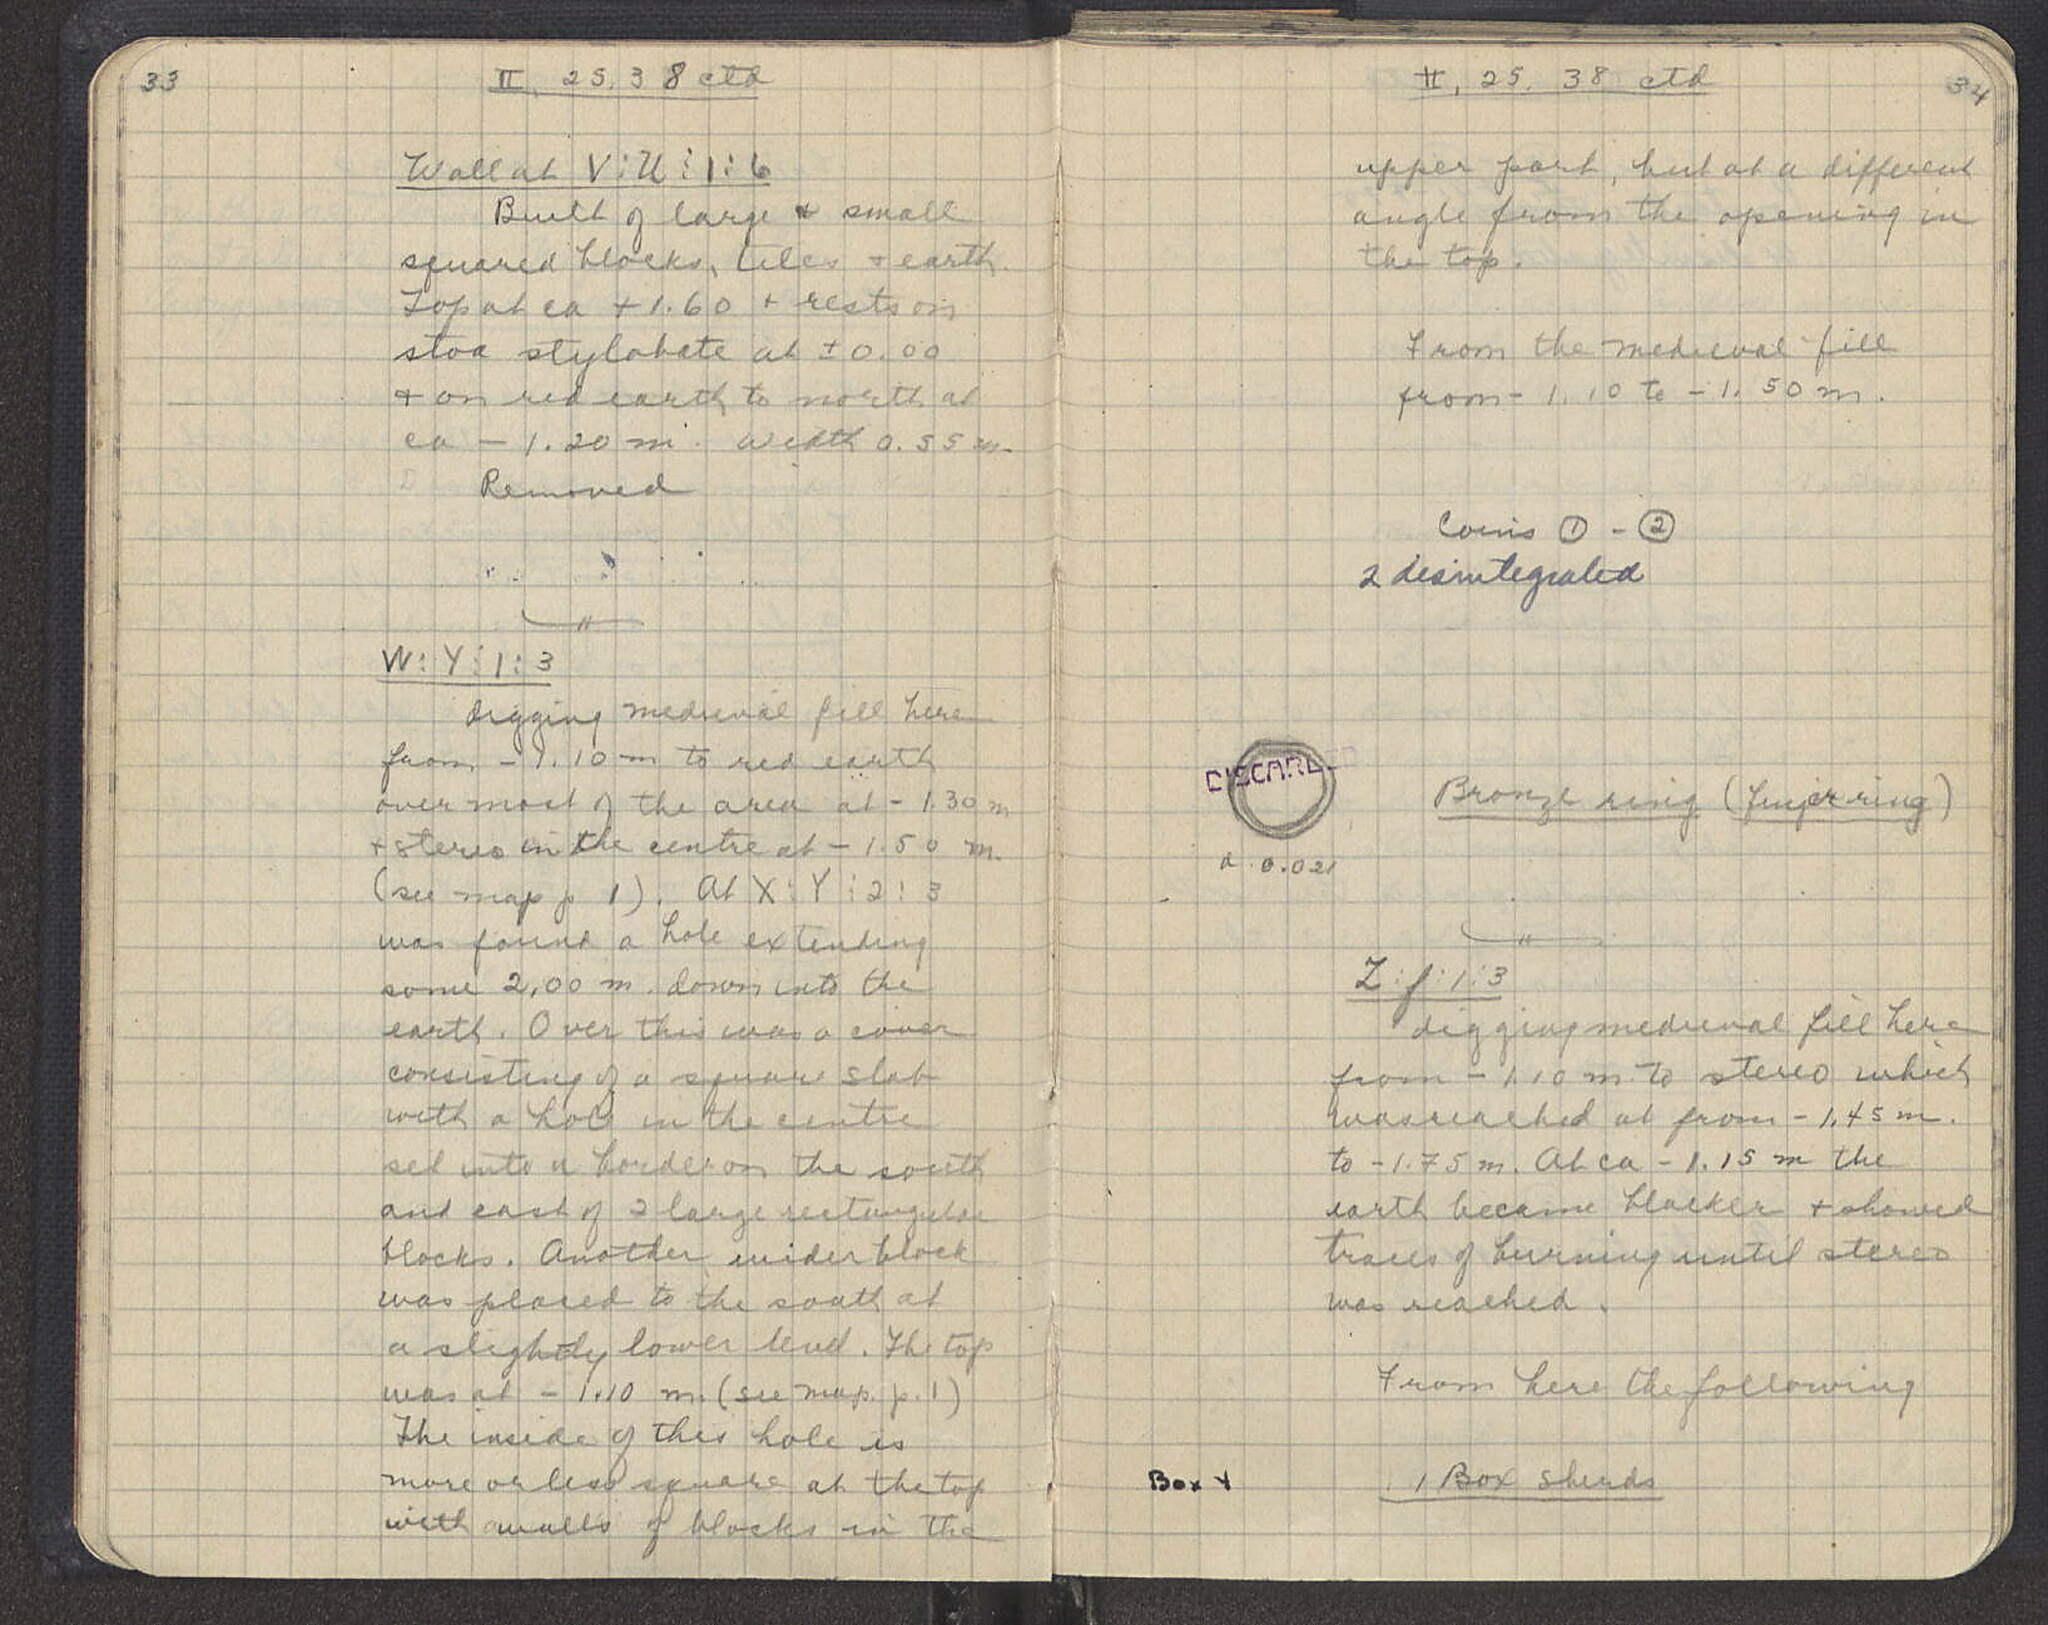 33
II, 25, 38 ctd
Wall at V:U:1:6
Built of large + small
squared blocks, tiles + earth.
Top at ca + 1.60 + rests on
stoa stylobate at ± 0.00
+ on red earth to north at
ca - 1.20 m. Width 0.55 m.
Removed
W:Y:1:3
digging medieval fill here
from - 1.10 m to red earth
over most of the area at - 1.30 m
+ stereo in the centre at - 1.50 m.
(see map p 1). At X:Y:2:3
was found a hole extending
some 2.00 m. down into the
earth. Over this was a cover
consisting of a square slab
with a hole in the centre
set into a border on the south
and east of 2 large rectangular
blocks. Another wider block
was placed to the south at
a slightly lower level. The top
was at - 1.10 m. (see map. p. 1)
The inside of this hole is
more or less square at the top
with walls of blocks in the
II, 25, 38 ctd
34
upper part, but at a different
angle from the opening in
the top.
From the medieval fill
from - 1.10 to - 1.50 m.
Coins ① - ②
2 disintegrated
DISCARDED
Bronze ring (finger ring)
d. 0.021
Z:f:1:3
digging medieval fill here
from - 1.10 m to stereo which
was reached at from - 1.45 m.
to - 1.75 m. At ca - 1.15 m the
earth became blacker + showed
traces of burning until stereo
was reached.
From here the following
Box 4
1 Box Sherds